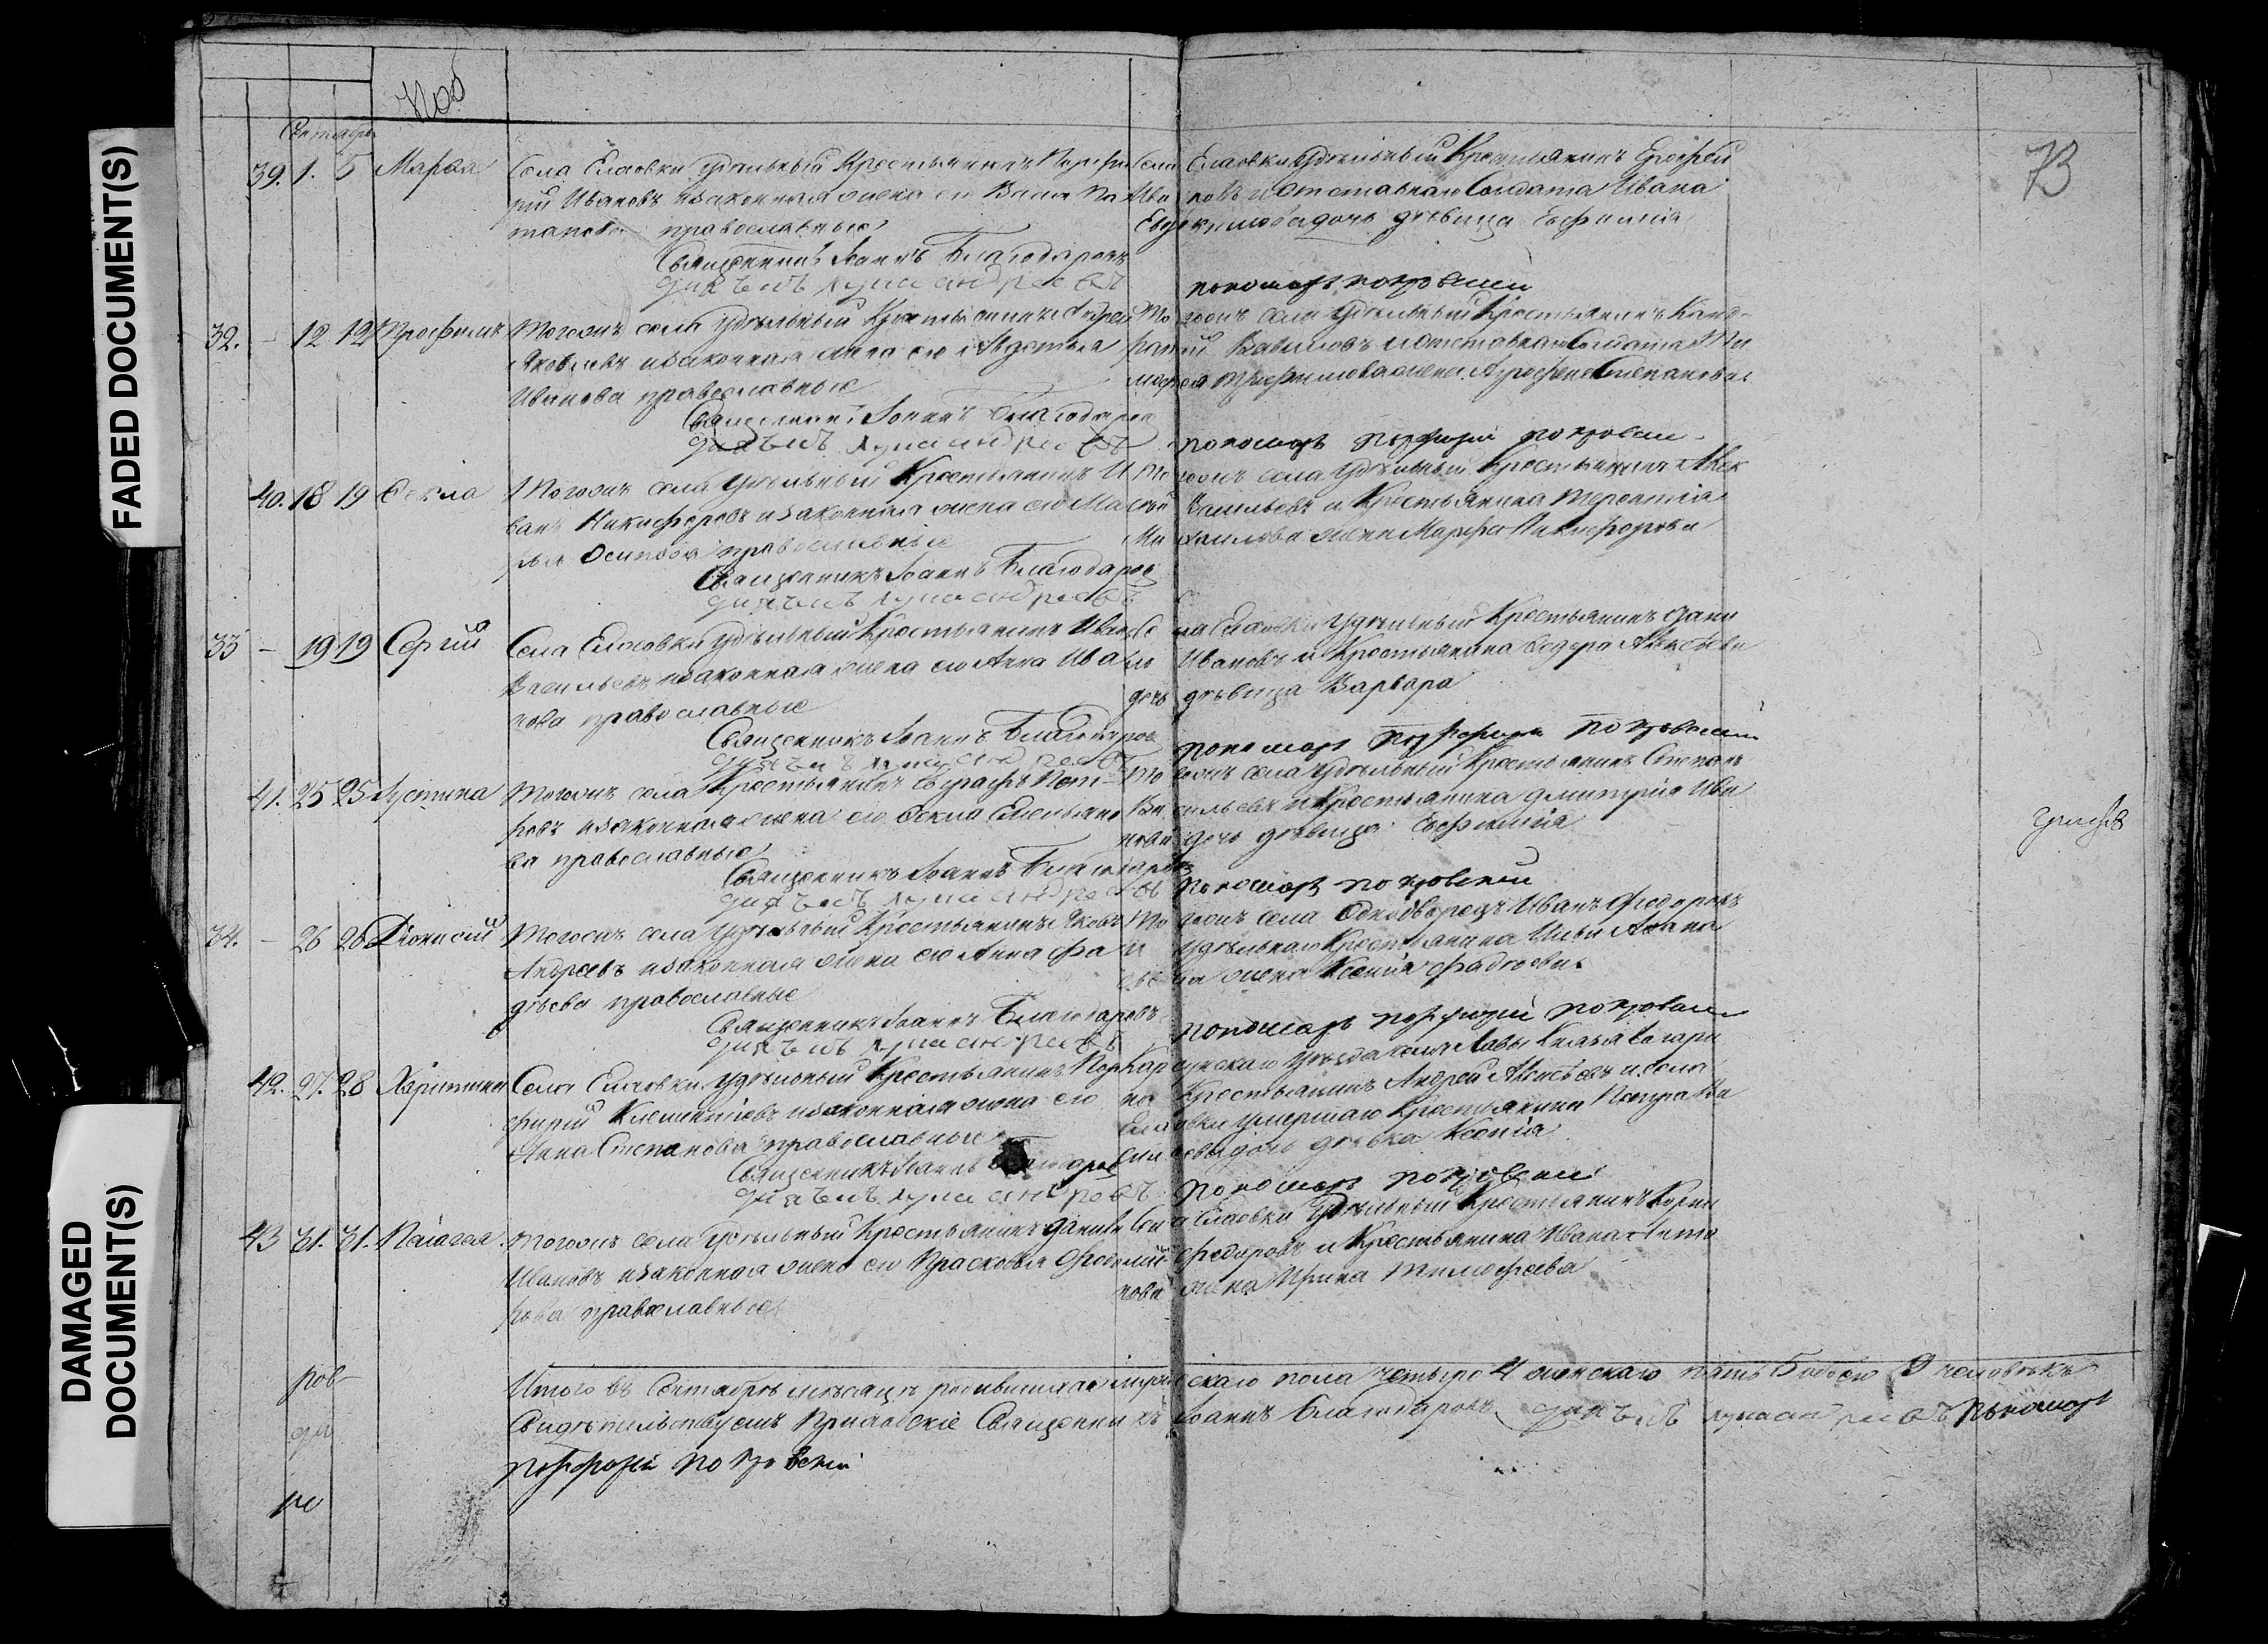 FADED DOCUMENT(S)
DAMAGED
DOCUMENT(S)
73
Сентябрь
39. 1. 5 Марфа Села Елаовки удѣльный Крестьянинъ Порфи
рій Ивановъ и законная жена его Васса По
тапова православные
Священникъ Іоаннъ Благодаровъ
дьячекъ лука андреевъ
Села Елаовки Удѣльный Крестьянинъ Ерофей
Ивановъ и отставнаго Солдата Ивана
Евдокимова дочь дѣвица Евфимія
пономарь покровский
32. – 12 12 Трофимъ Тогожъ села Удѣльный Крестьянинъ Андрей
Яковлевъ и законная жена его Авдотья
Иванова православные
Священникъ Іоаннъ Благодаров
дьячекъ лука андреевъ
Тогожъ села удѣльный КрестьянинъКонд-
ратий Вавиловъ и отставнаго Солдата Ти
мофея Трофимова жена Агрофена Степанова
пономарь порфирий покровский
40. 18 19 Фекла Тогожъ села Удѣльный Крестьянинъ И
ванъ Никифоровъ и законная жена его Ма
рья Осипова православные
Священникъ Іоаннъ Благодаров
дьячекъ лука андреевъ
Тогожъ села Удѣльный Крестьянинъ Алек
сѣй Васильевъ и Крестьянина Терентія
Михаилова жена Марфа Никифорова
33 – 19 19 Сергий Села Елаовки удѣльный Крестьянинъ Иванъ
Васильевъ и законная жена его Анна Ива
нова православные
Священникъ Іоаннъ Благодаров
дьячекъ лука андреевъ
Села Елаовки Удѣльный Крестьянинъ Дани
ло Ивановъ и Крестьянина Федора Алексѣева
дочь дѣвица Варвара
пономарь порфирий покровский
41. 25 25 Устина Тогожъ села Крестьянинъ Евграфъ Пет-
ровъ и законная жена его Фекла Емельяно
ва православные
Священникъ Іоаннъ Благодаровъ
дьячекъ лука андреевъ
Тогожъ села Удѣльный Крестьянинъ Степанъ
Васильевъ и Крестьянина Дмитрія Ива
нова дочь дѣвица Евфимія
пономарь покровский
34. – 26 26 Діонисий Тогожъ села Удѣльный Крестьянинъ Яковъ
Андреевъ и законная жена его Анна Фа
дѣева православные
Священникъ Іоаннъ Благодаровъ
дьячекъ лука андреевъ
Тогожъ села Однодворецъ Иванъ Федоровъ
и Удѣльнаго Крестьянина Ильи Афана
сьева жена Ксения Фадѣева
пономарь порфирий покровский
42. 27. 28 Харитина Села Елаовки Удѣльный Крестьянинъ Пор
фирий Климентьевъ и законная жена его
Анна Степанова православные
Священникъ Іоаннъ Благодаров
дьячекъ лука андреевъ
Карсунскаго уѣзда села Лавы Князя Гагари
на Крестьянинъ Андрей Алексѣевъ и села
Елаовки умершаго Крестьянина Петра Ва
сильева дочь дѣвка Ксенія
пономарь покровский
43 31. 31. Пелагея Тогожъ села Удѣльный Крестьянинъ Данила
Ивановъ и законная жена его Прасковья Федо
рова православные
Села Елаовки Удѣльный Крестьянинъ Корни
лий Федоровъ и Крестьянина Ивана Анто
нова жена Ирина Тимофеева
Итого въ Сентябрѣ мѣсяцѣ родившихся мужескаго пола четыре 4 женскаго пять 5 обоего 9 человѣкъ
Свидѣтельствуемъ Приходскіе Священникъ Іоаннъ Благодаровъ дьячекъ лука андреевъ пономарь
порфирий покровский